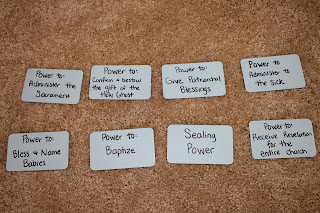 Power to:
Administer the
Sacrament
Power to:
Confirm & bestow
the gift of the
Holy Ghost
Power to:
Give Patriarchal
Blessings
Power to
Administer to
the Sick
Power to:
Bless & Name
Babies
Power to:
Baptize
Sealing
Power
Power to:
Receive Revelation
for the
entire Church